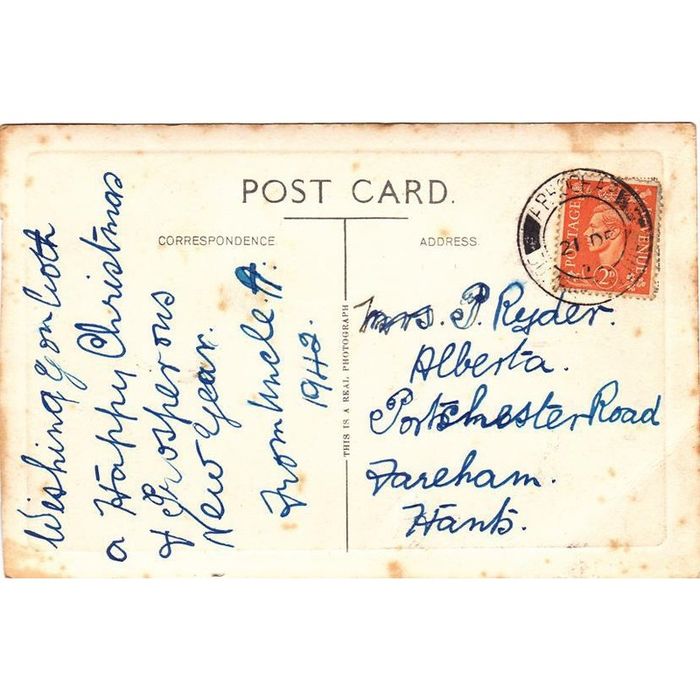 POST CARD.
CORRESPONDENCE
ADDRESS.
Wishing You both
a Happy Christmas
& Prosperous
New Year.
From Uncle H.
1942.
THIS IS A REAL PHOTOGRAPH
Mrs. P. Ryder.
Alberta.
Portchester Road
Fareham.
Hants.
POSTAGE
2D
21 DE